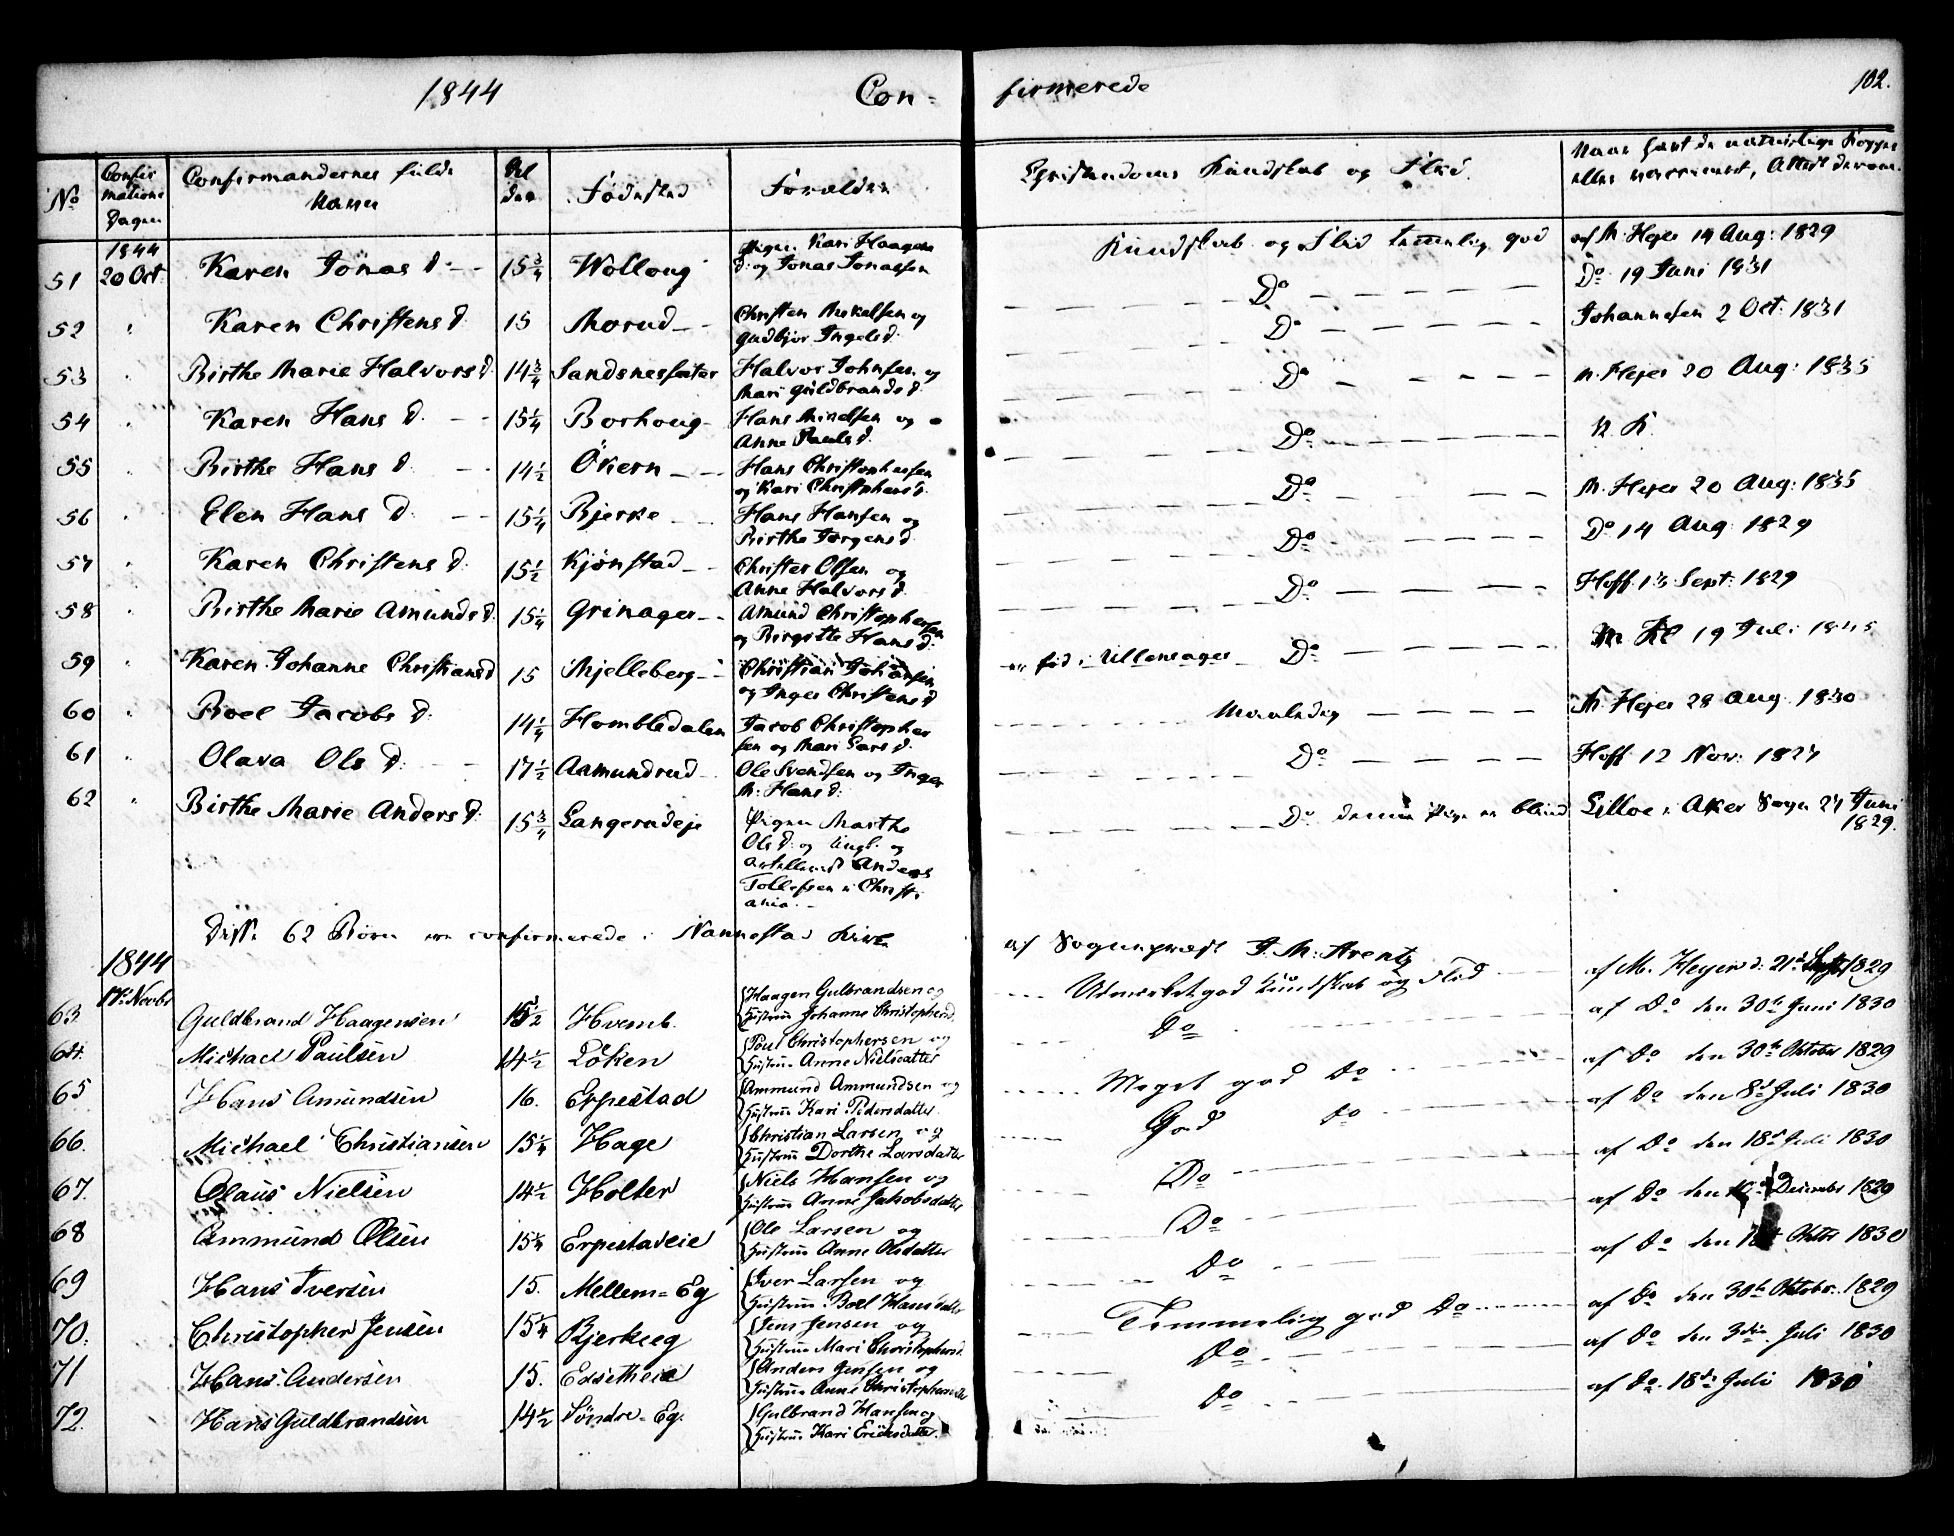 1844 Con- firmerede 102.
No Confir mations Dagen Confirmandernes fulde Navn Al der Fødested Forældre Christendoms Kundskab og Flid. Naar havt de naturlige Kopper eller vaccineret, Attest derom.
1844
51 20 Oct Karen Jonas D. 15 3/4 Wolloug Pigen Kari Haagens D. og Jonas Jonassen Kundskab og Flid temmelig god af M. Hejer 14 Aug: 1829
52 Karen Christens D. 15 Morud Christen Mikelsen og Gudbjør Ingels d. Do Do 19 Juni 1831
53 Birthe Marie Halvors D. 14 3/4 Sandsnesfeter Halvor Johnsen og Mari Guldbrands d. Do Johannesen 2 Oct: 1831
54 Karen Hans D. 15 1/4 Borhoug Hans Mikelsen og Anne Pauls d. Do M. Hejer 20 Aug: 1835
55 Birthe Hans D. 14 1/2 Økern Hans Christophersen og Kari Christophers d. Do N. K.
56 Elen Hans D. 15 1/4 Bjerke Hans Hansen og Birthe Jørgens d. Do M. Hejer 20 Aug: 1835
57 Karen Christens D. 15 1/2 Kjønstad Christen Olsen og Anne Halvors d. Do Do 14 Aug 1829
58 Birthe Marie Amunds d. 15 1/4 Grinager Amund Christophersen og Birgitte Hans d. Do Hoff 13 Sept: 1829
59 Karen Johanne Christians d 15 Mjelleberg Christian Johansen og Inger Christens d er fød i Ullensager Do 19 Juli 1845
60 Boel Jacobs D. 14 1/4 Hombledalen Jacob Christopher sen og Mari Lars d. Maalelig M. Hejer 28 Aug. 1830
61 Olava Ols D. 17 1/2 Aamundrud Ole Svendsen og Inger M. Hans d. Do Hoff 12 Nov: 1827
62 Birthe Marie Anders D. 15 3/4 Langerudeje Pigen Marthe Ols D. og Ungk. og Artillerist Anders Tollefsen i Christi ania. Do denne Pige er blind Lilloe i Aker Sogn 27 Juni 1829.
Disse 62 Børn ere confirmerede i Nannestad Kirke af Sognepræst J. M. Arentz
1844
17de Novbr
63 Guldbrand Haagensen 15 1/2 Hvemb. Haagen Gulbrandsen og Hustrue Johanne Christophersd. Udmærket god Kundskab og Flid af M. Heyer d: 21de Septr 1829
64. Michael Paulsen 14 1/2 Løken Poul Christophersen og Hustrue Anne Nielsdatter Do af Do den 30te Juni 1830
65 Hans Amundsen 16. Erpestad Ammund Ammundsen og Hustrue Kari Pedersdatter. Meget god Do af Do den 30te Oktober 1829
66. Michael Christiansen 15 1/4 Hage Christian Larsen og Hustrue Dorthe Larsdatter God do af Do den 8de Juli 1830
67. Olaus Nielsen 14 1/2 Holter Niels Hansen og Hustrue Anne Jakobsdatter Do af Do den 18de Juli 1830
68 Ammund Olsen 15 1/4 Erpestadeie Ole Larsen og Hustrue Anne Olsdatter Do af Do den Decembr 1829
69 Hans Iversen 15. Mellem-Eg Iver Larsen og Hustrue Boel Hansdatter Do af Do den Oktbr 1830
70. Christopher Jensen 15 1/4 Bjerkeeg Jens Jensen og Hustrue Mari Christophersd. Temmelig god Do af Do den 30te Oktober. 1829
71 Hans Andersen 15. Anders Jensen og Hustrue Anne Christophersdtr Do af Do den 3die Juli 1830
72. Hans Guldbrandsen 14 1/2 Søndre-Eg. Gulbrand Hansen og Hustrue Kari Eriksdatter. Do af Do. 18de Juli 1830